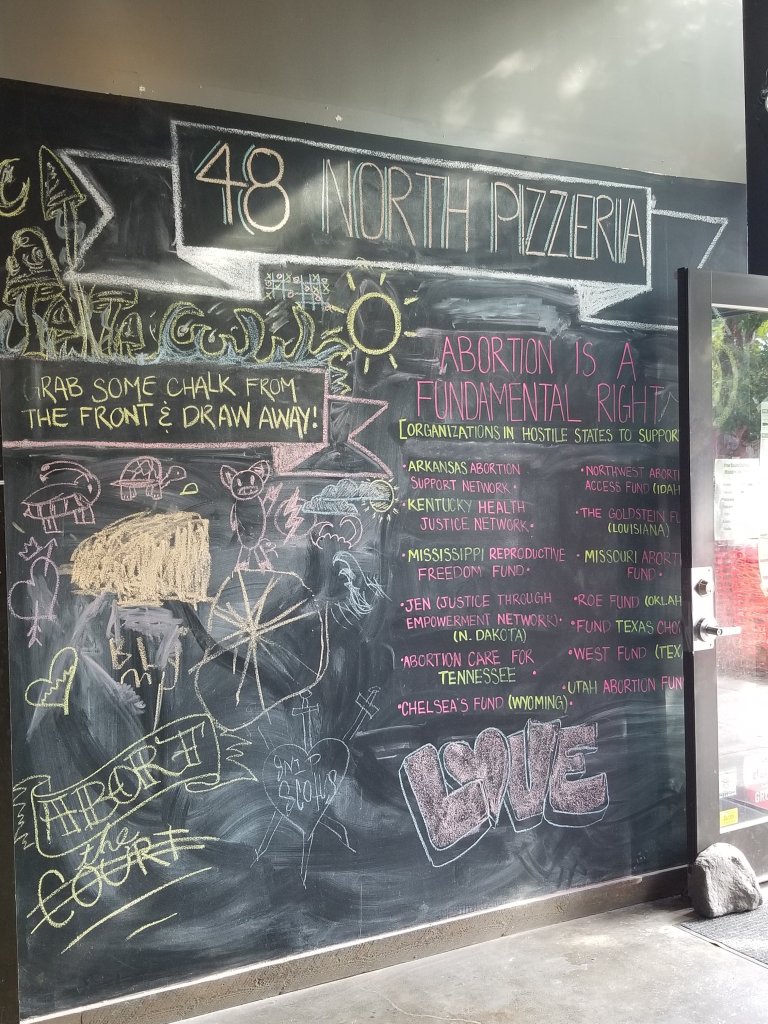 48 NORTH PIZZERIA
GRAB SOME CHALK FROM
THE FRONT & DRAW AWAY!
ABORTION IS A
FUNDAMENTAL RIGHT
[ORGANIZATIONS IN HOSTILE STATES TO SUPPORT
• ARKANSAS ABORTION
SUPPORT NETWORK •
• KENTUCKY HEALTH
JUSTICE NETWORK •
• MISSISSIPPI REPRODUCTIVE
FREEDOM FUND •
• JEN (JUSTICE THROUGH
EMPOWERMENT NETWORK) •
(N. DAKOTA)
• ABORTION CARE FOR
TENNESSEE •
• CHELSEA'S FUND (WYOMING) •
• NORTHWEST ABORTI
ACCESS FUND (IDAH
• THE GOLDSTEIN FU
(LOUISIANA)
• MISSOURI ABORT
FUND •
• ROE FUND (OKLAH
• FUND TEXAS CHO
• WEST FUND (TEX
• UTAH ABORTION FUN
LOVE
ABORT
the
COURT